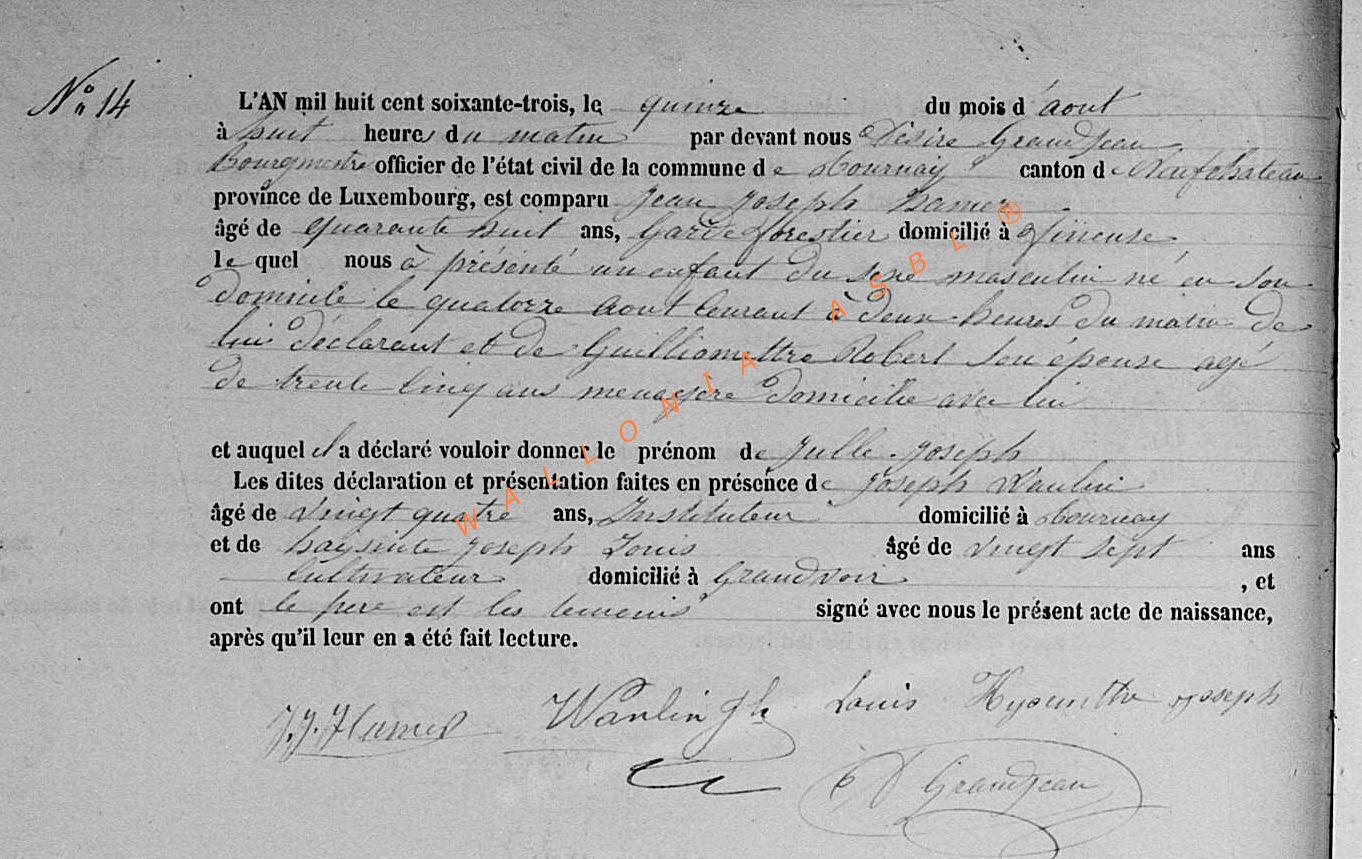 No 14
L'AN mil huit cent soixante-trois, le quinze du mois d'aout
à huit heures du matin par devant nous Désiré Grandjean
Bourgmestre officier de l'état civil de la commune de Tournay canton de Neufchateau
province de Luxembourg, est comparu Jean Joseph Hamer
âgé de quarante huit ans, Garde forestier domicilié à
le quel nous à présenté un enfant du sexe masculin né en son
domicile le quatorze aout courant à deux heures du matin de
lui déclarant et de Guilliomettre Robert son épouse agé
de trente cinq ans menagère domicilié avec lui
et auquel il a déclaré vouloir donner le prénom de Julle Joseph
Les dites déclaration et présentation faites en présence de Joseph Wanlin
âgé de vingt quatre ans, Instituteur domicilié à Tournay
et de Joseph Louis âgé de vingt sept ans
Cultivateur domicilié à Grandvoir , et
ont le pere est les temoins signé avec nous le présent acte de naissance,
après qu'il leur en a été fait lecture.
J. J. Hamer Wanlin Jh Louis Hyacinthe Joseph
D Grandjean
WALLONIA ASBL ®